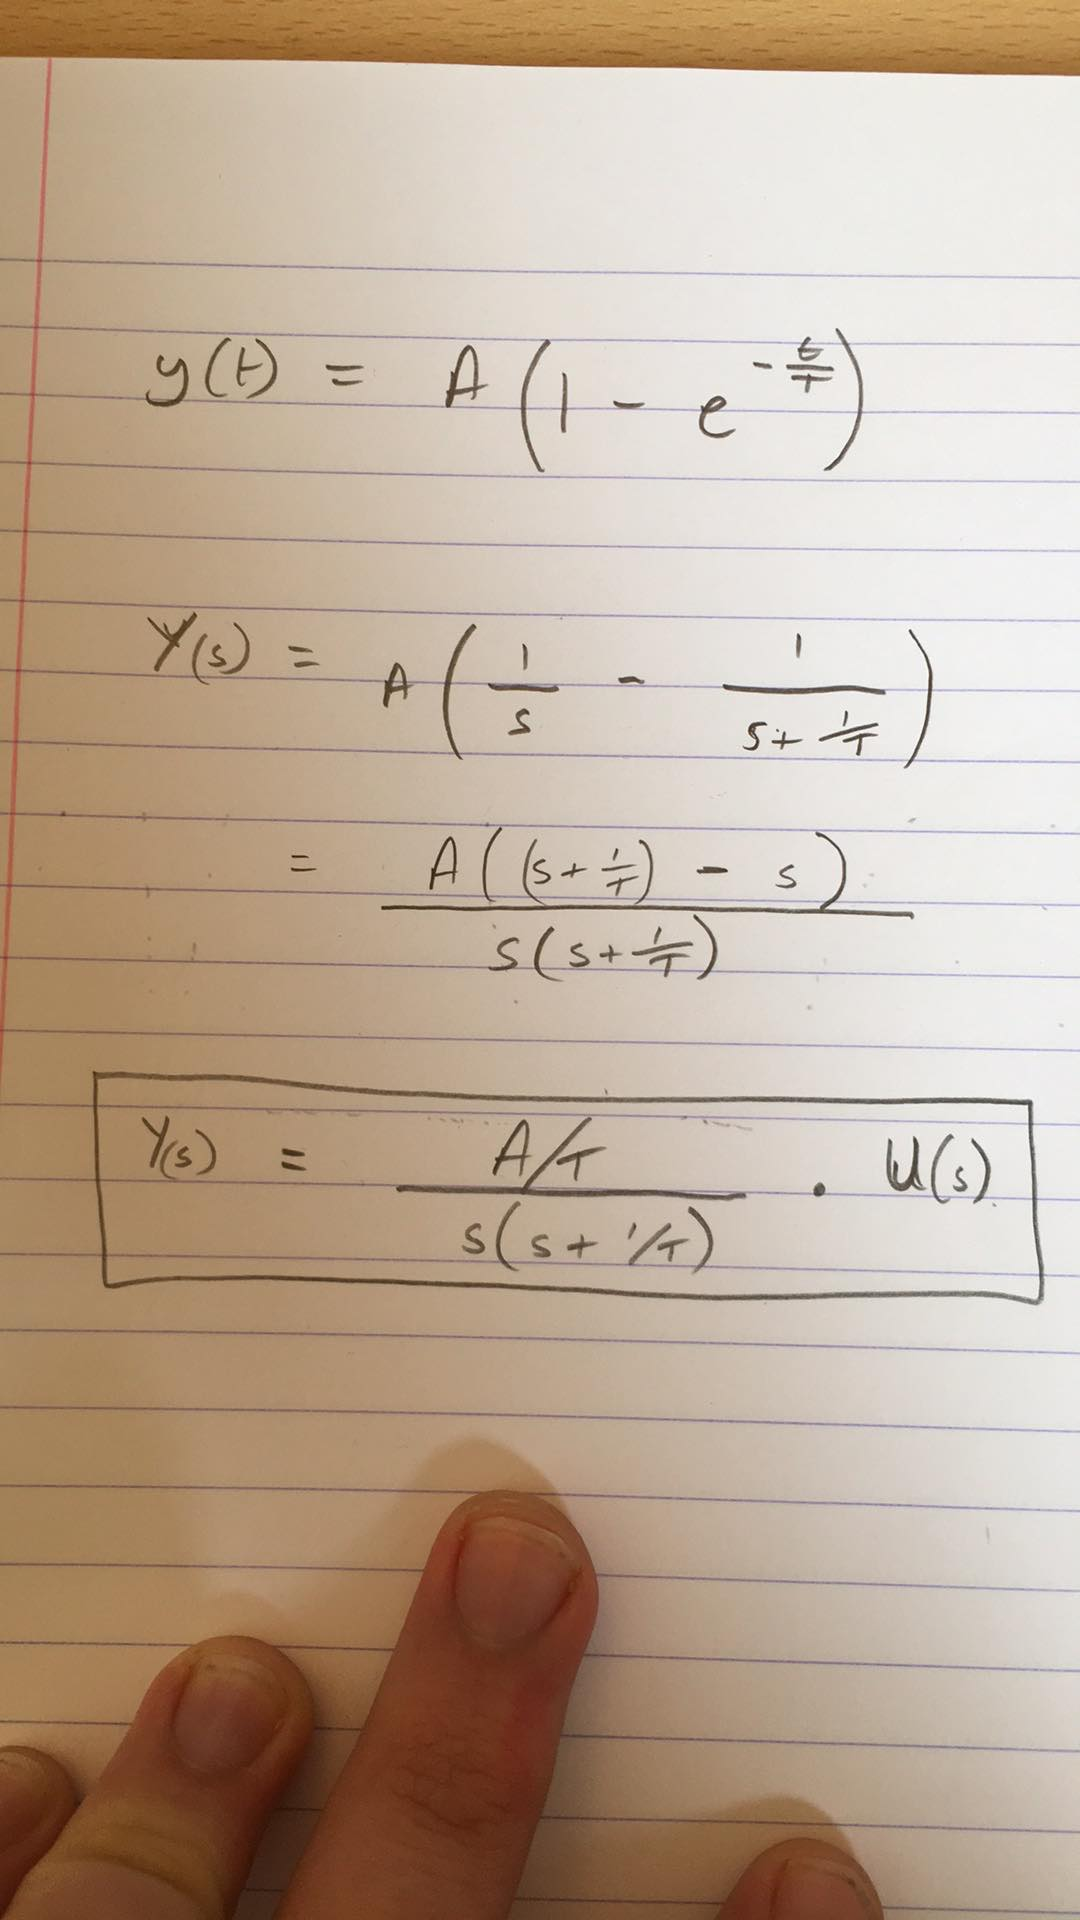 y(t) = A(1 - e^{-t/T})
Y(s) = A(1/s - 1/(s + 1/T))
= A((s + 1/T) - s) / s(s + 1/T)
Y(s) = A/T / s(s + 1/T) · U(s)